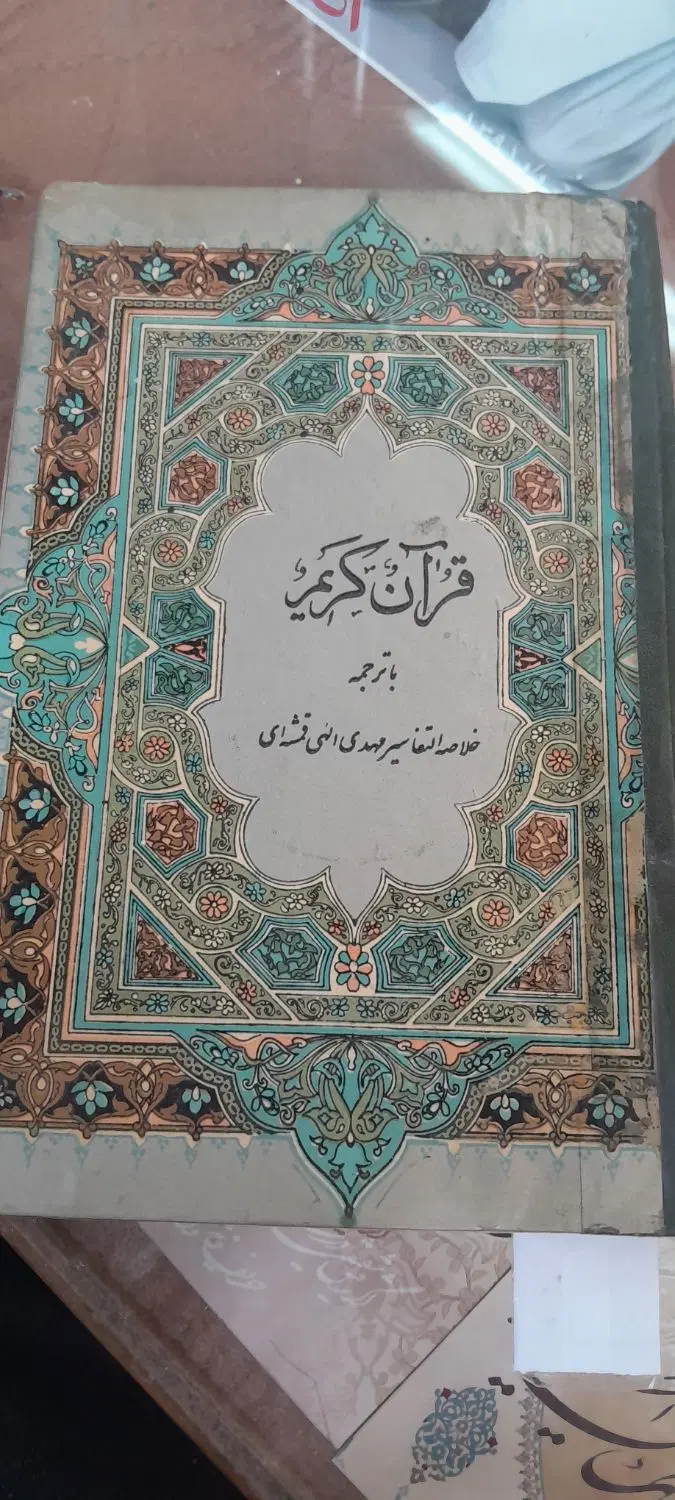 قرآن کریم
با ترجمه
خلاصة التفاسیر مهدی الهی قمشه‌ای